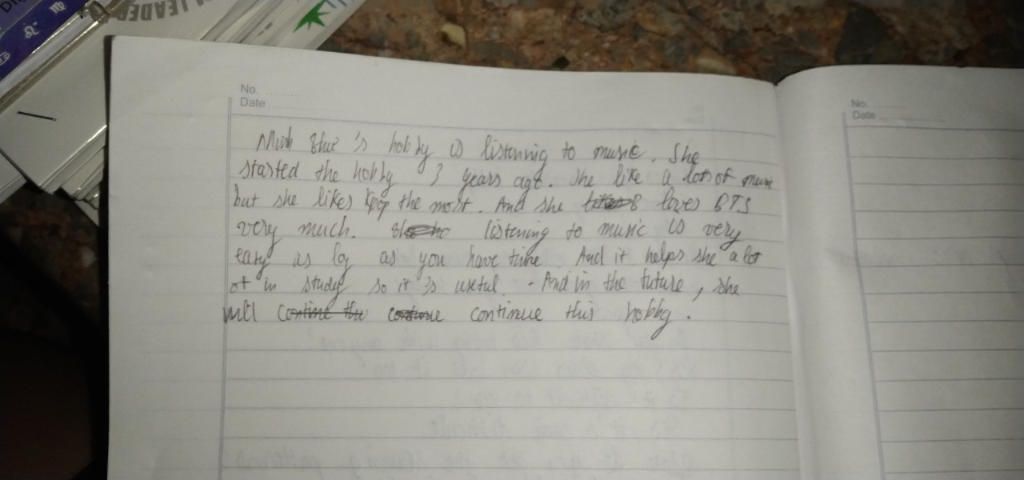 LEADER
No.
Date
No.
Date
's hobby is listenning to music. She
started the hobby 3 years ago. She like a lots of music
but she likes kpop the most. And she loves BTS
very much. listening to music is very
easy as log as you have time. And it helps she a lot
of in study so it is useful. And in the future, she
will continue this hobby.